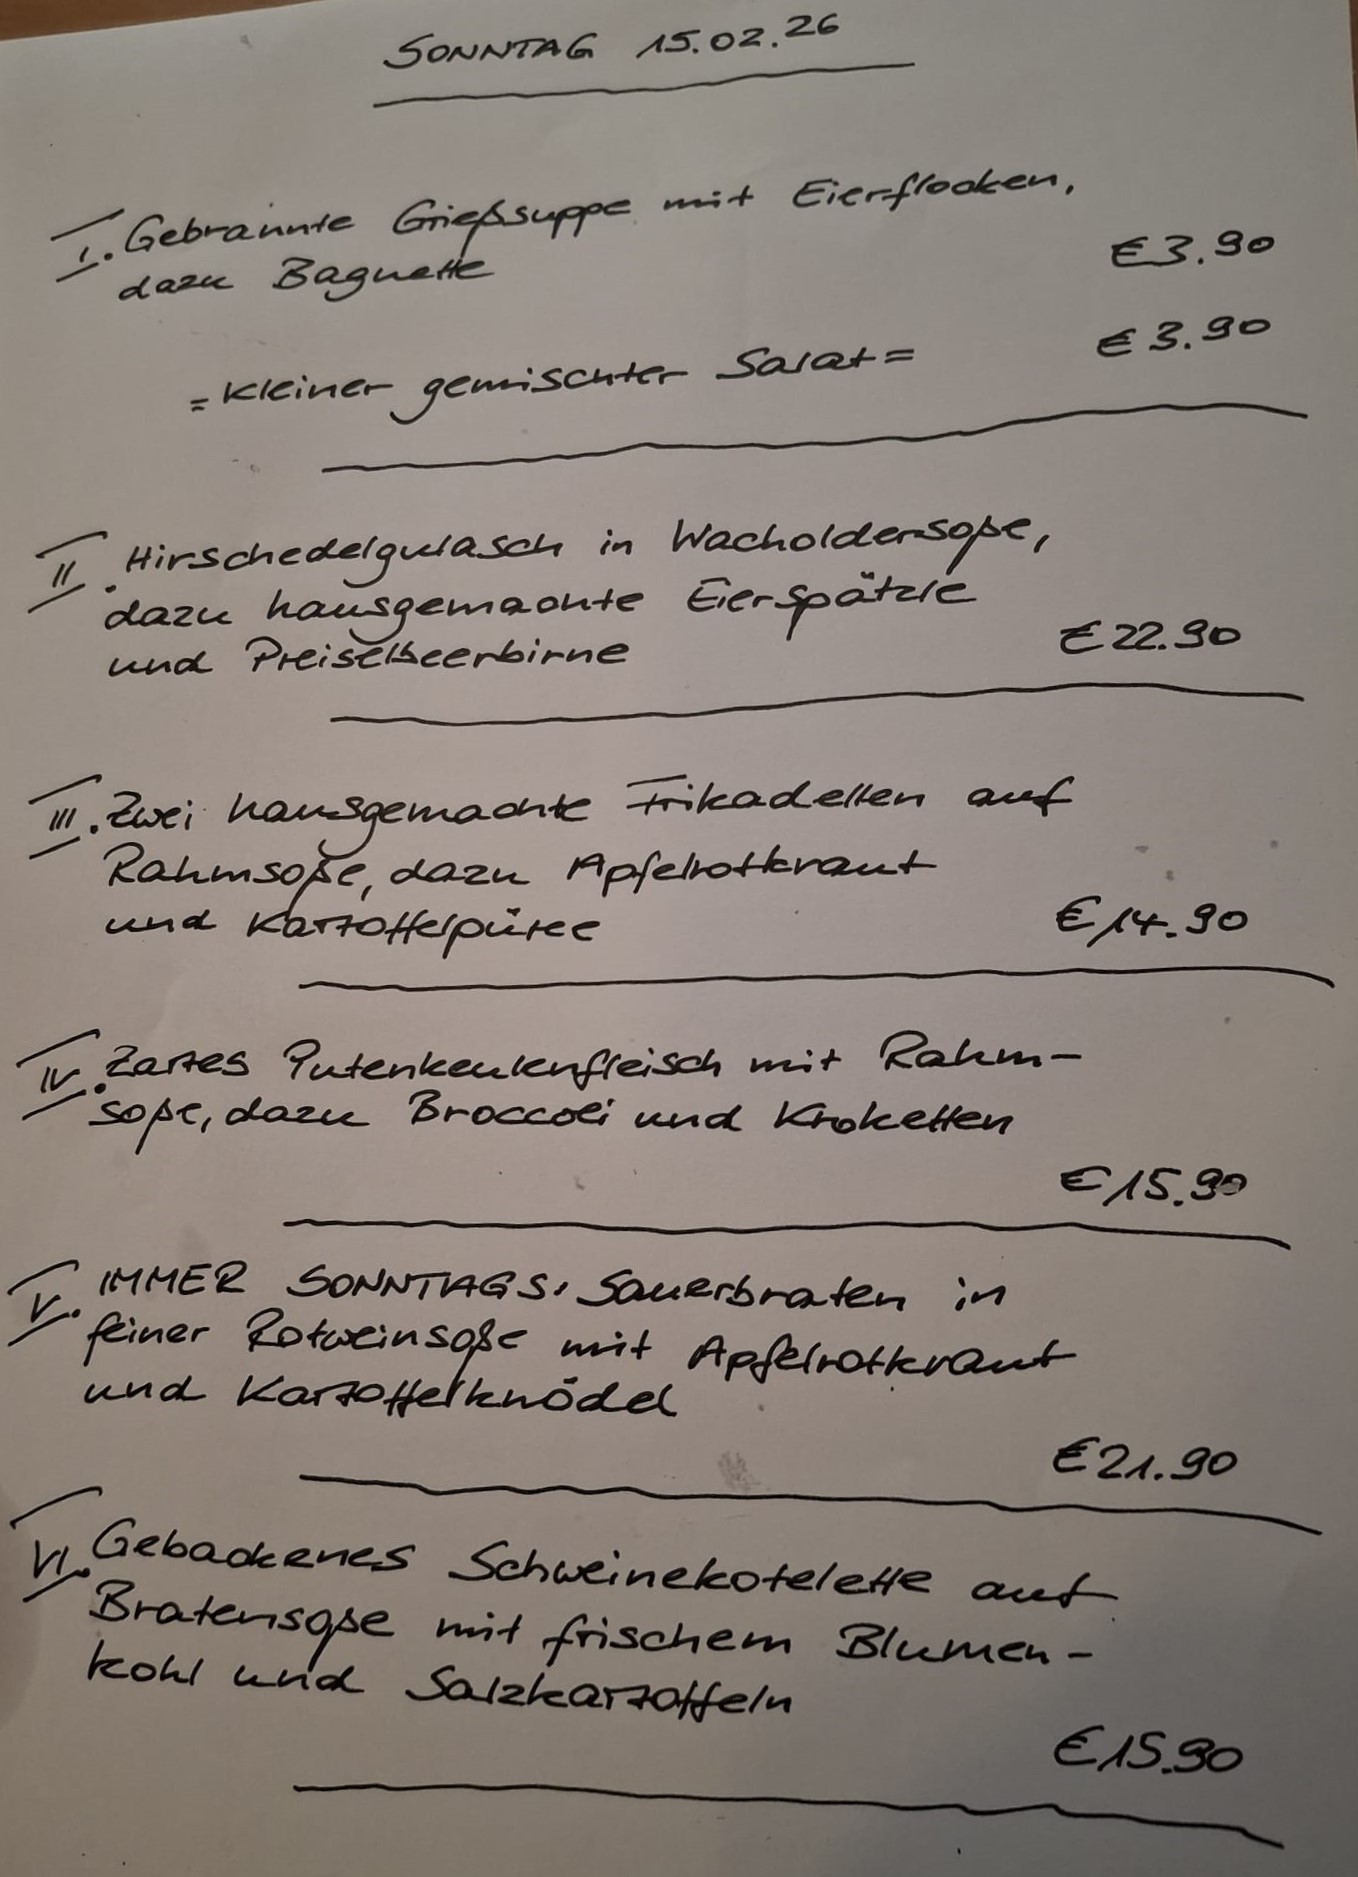 SONNTAG 15.02.26
I. Gebrannte Grießsuppe mit Eierflocken,
dazu Baguette
€3.90
=kleiner gemischter Salat=
€3.90
II. Hirschedelgulasch in Wacholdersoße,
dazu hausgemachte Eierspätzle
und Preiselbeerbirne
€22.90
III. Zwei hausgemachte Frikadellen auf
Rahmsoße, dazu Apfelrotkraut
und Kartoffelpüree
€14.90
IV. Zartes Putenkeulenfleisch mit Rahm-
soße, dazu Broccoli und Kroketten
€15.90
V. IMMER SONNTAGS, Sauerbraten in
feiner Rotweinsoße mit Apfelrotkraut
und Kartoffelknödel
€21.90
VI. Gebackenes Schweinekotelette auf
Bratensoße mit frischem Blumen-
kohl und Salzkartoffeln
€15.90